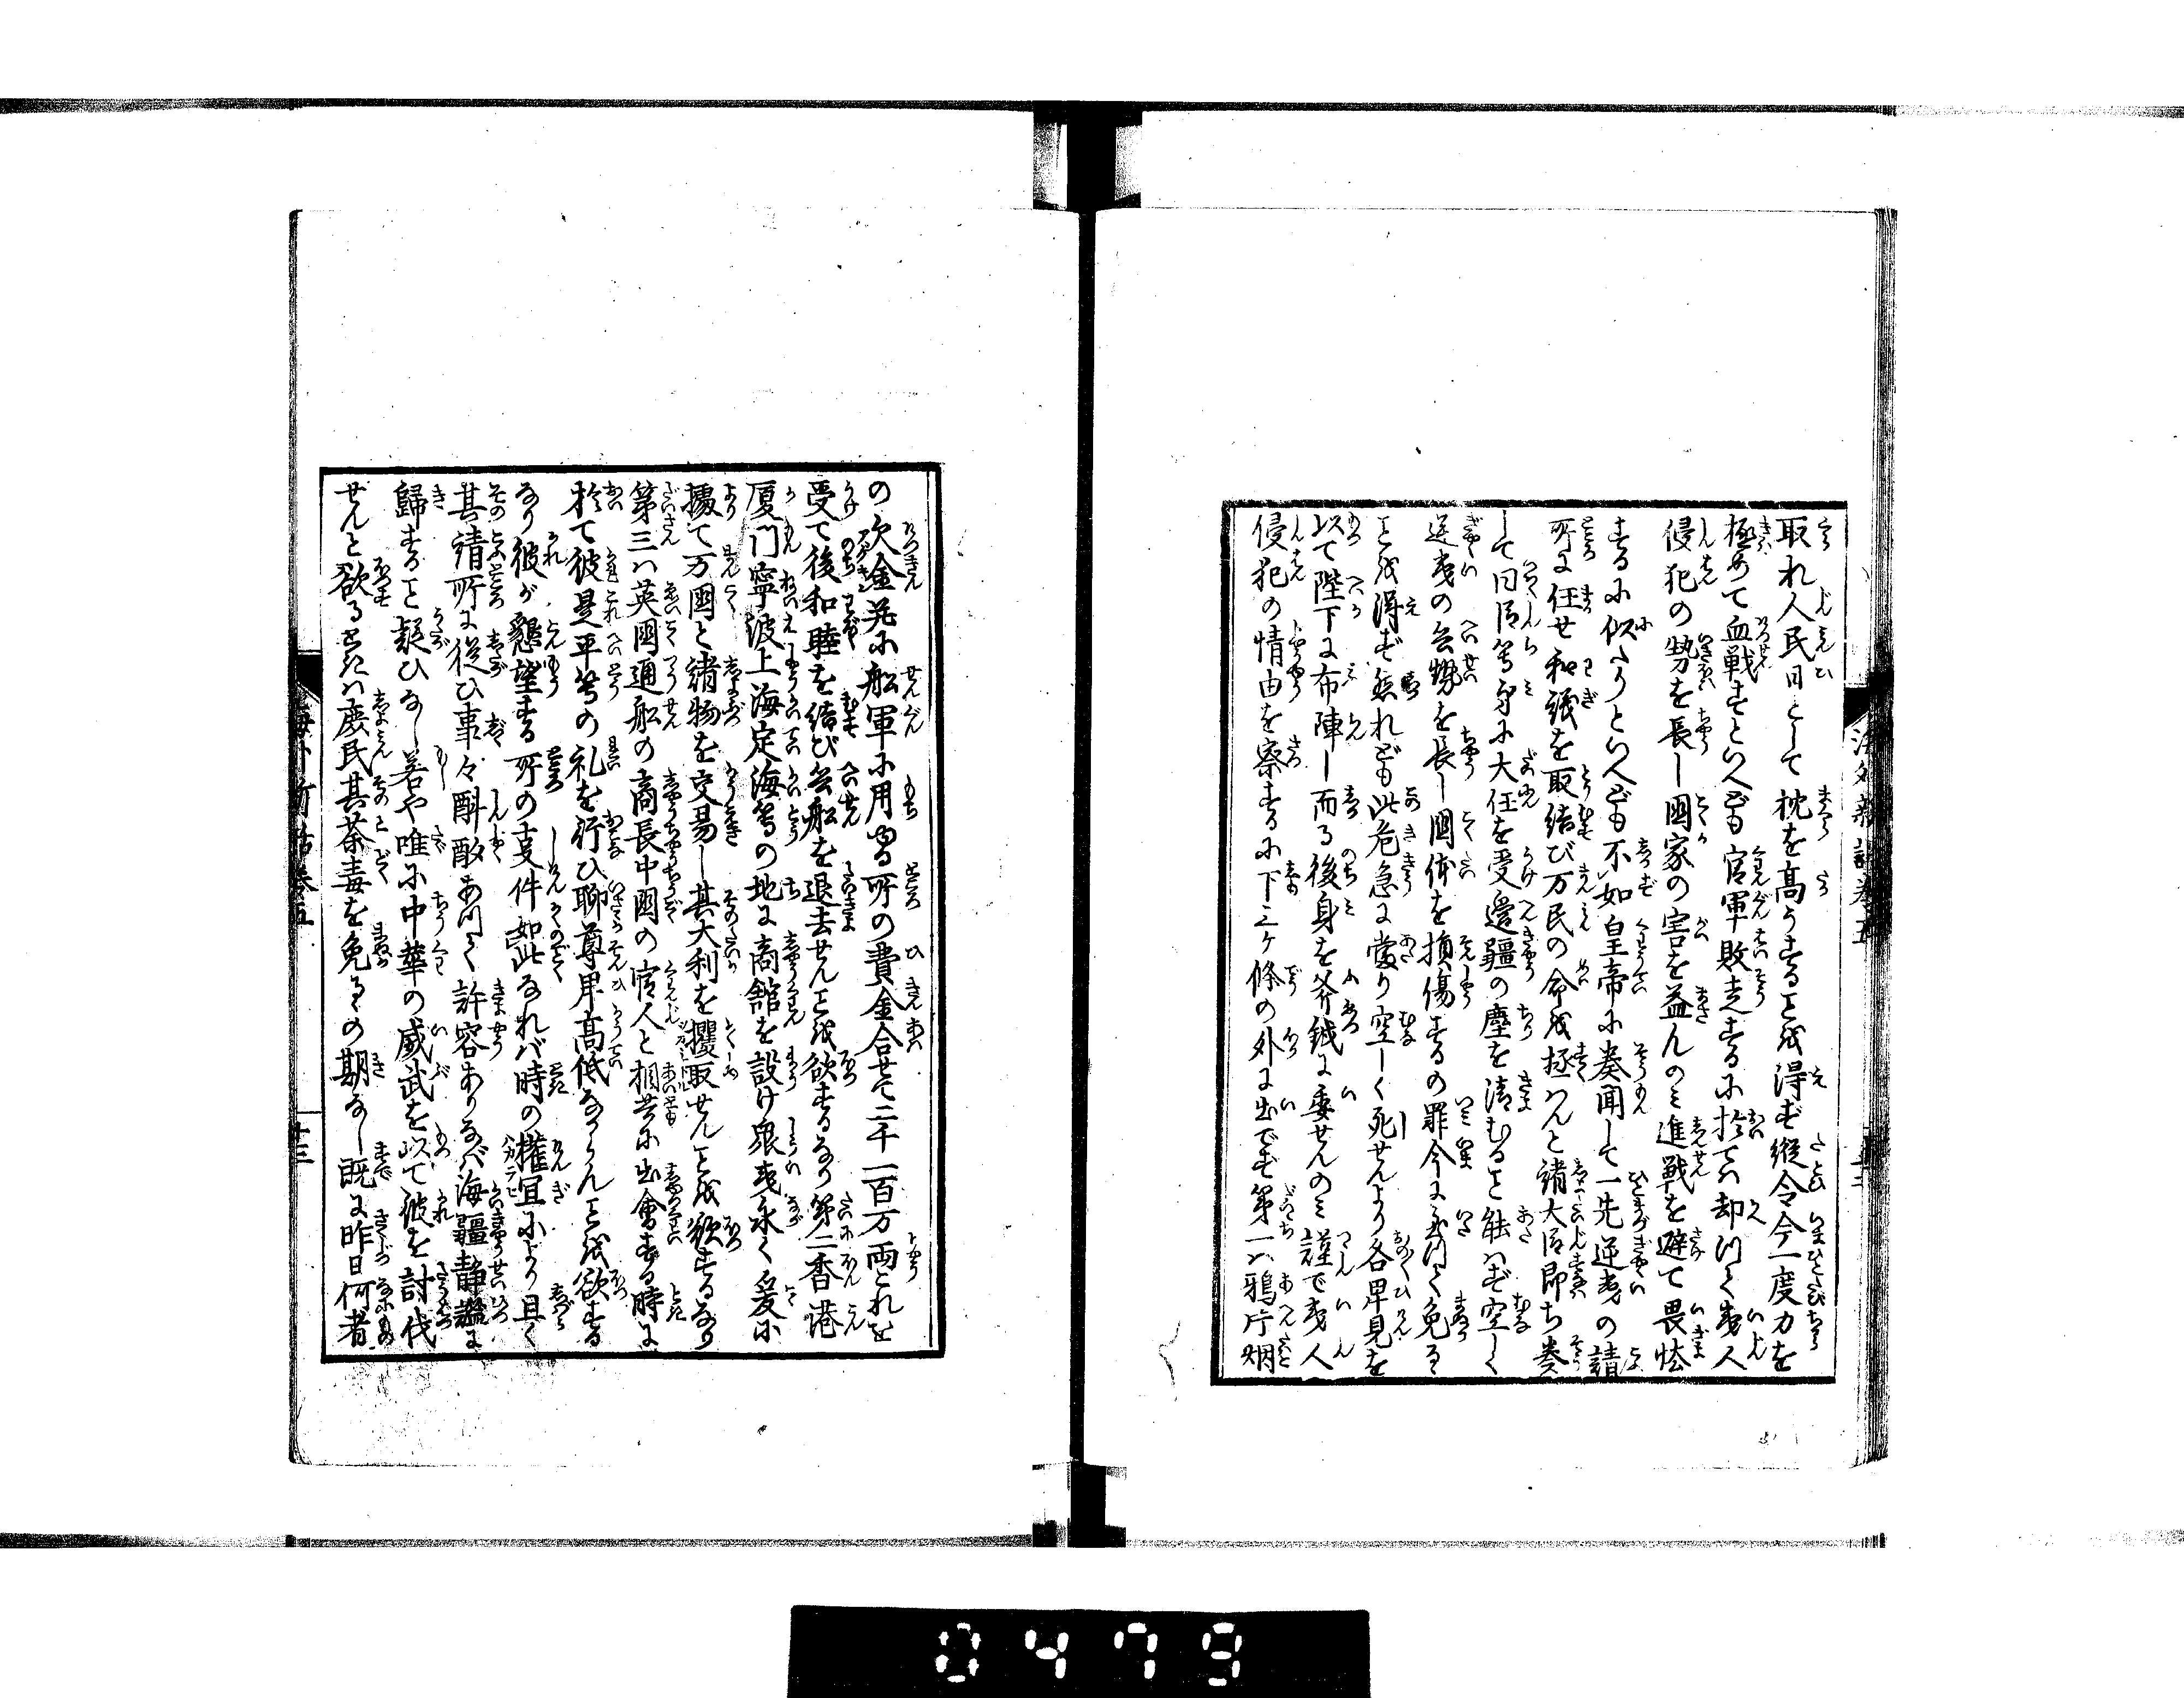 取れ人民日として枕を高うすることを得ず縦令今一度力を
極めて血戦すといへども官軍敗走するに於てハ却つて夷人
侵犯の勢を長し国家の害を益んのミ進戦を避て畏怯
するに似たりといへども不如皇帝に奏聞して一先逆夷の請
所に任せ和議を取結び万民の命を拯ハんと諸大臣即ち奏
して曰臣等身に大任を受邊疆の塵を清むること能ハず空しく
逆夷の兵勢を長し國体を損傷するの罪今に至つて免る
ことを得ず然れども此危急に當り空しく死せんより各卑見を
以て陛下に布陳し而る後身を斧鉞に委せんのミ謹で夷人
侵犯の情由を察するに下三ケ條の外に出でず第一ハ鴉片烟
の欠金并に船軍に用ゆる所の費金合せて二千一百万両これを
受て後和睦を結び兵船を退去せんことを欲するなり第二香港
厦门寧波上海定海等の地に商館を設け衆夷永く爰に
據て万國と諸物を交易し其大利を攫取せんことを欲するなり
第三ハ英國通船の商長中國の官人と相共に出會する時に
於て彼是平等の礼を行ひ聊尊卑高低なからんことを欲する
なり彼が懇望する所の支件如此なれバ時の權宜により且く
其請所に從ひ事々斟酌あつて許容ありなバ海疆静謐に
歸すること疑ひなし若や唯に中華の威武を以て彼を討伐
せんと欲るときハ慶民其荼毒を免るゝの期なし既に昨日何者
海外新話巻五
十三
0479